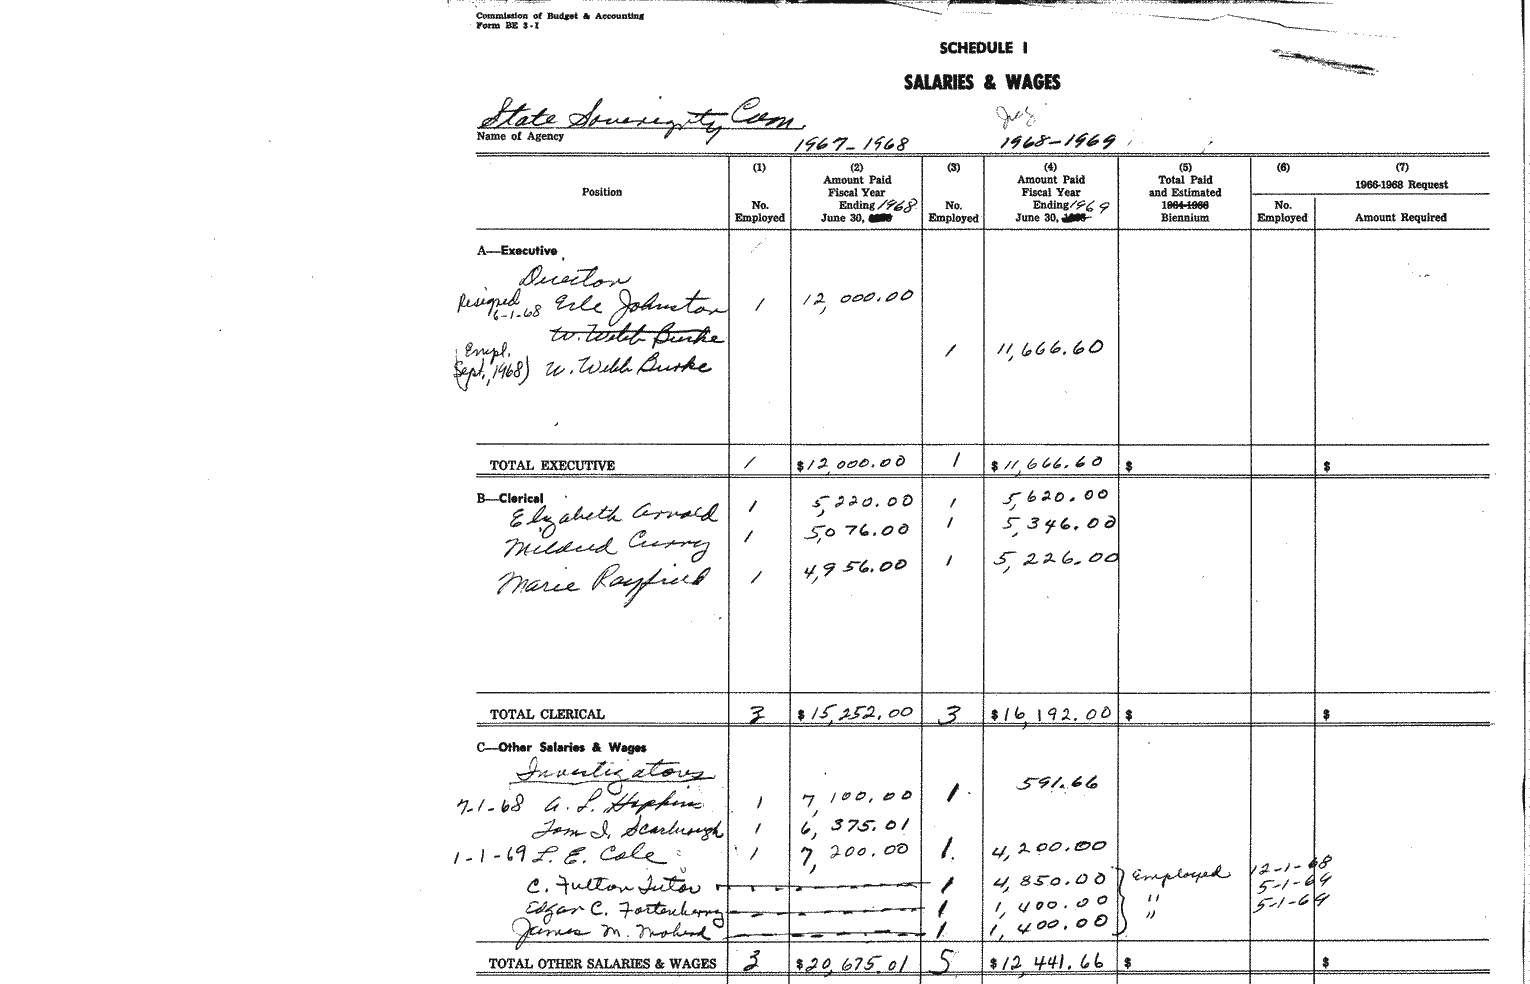 Commission of Budget & Accounting
Form BE 3-I
SCHEDULE I
SALARIES & WAGES
State Sovereignty Com.
Name of Agency
1967-1968 1968-1969
Position
(1) No. Employed
(2) Amount Paid Fiscal Year Ending 1968 June 30,
(3) No. Employed
(4) Amount Paid Fiscal Year Ending 1969 June 30,
(5) Total Paid and Estimated 1964-1966 Biennium
(6) No. Employed
(7) 1966-1968 Request
Amount Required
A—Executive
Director
Resigned 6-1-68 Erle Johnston 1 12,000.00
W. Webb Burke
(Empl. Sept., 1968) W. Webb Burke 1 11,666.60
TOTAL EXECUTIVE 1 $12,000.00 1 $11,666.60 $ $
B—Clerical
Elizabeth Arnold 1 5,220.00 1 5,620.00
Mildred Curry 1 5,076.00 1 5,346.00
Marie Rayfield 1 4,956.00 1 5,226.00
TOTAL CLERICAL 3 $15,252.00 3 $16,192.00 $ $
C—Other Salaries & Wages
Investigators
7-1-68 A. L. Hopkins 1 7,100.00 1 591.66
Tom I. Scarbrough 1 6,375.01
1-1-69 L. E. Cole 1 7,200.00 1. 4,200.00
C. Fulton Tutor 1 4,850.00 } Employed 12-1-68
Edgar C. Fortenberry 1 1,400.00 " 5-1-69
James M. Mohead 1. 1,400.00 " 5-1-69
TOTAL OTHER SALARIES & WAGES 3 $20,675.01 5 $12,441.66 $ $